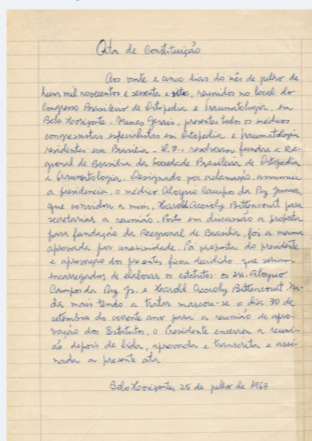 Ata de Constituição
Aos vinte e cinco dias do mês de julho de
hum mil novecentos e sessenta e sete, reunidos no local do
Congresso Brasileiro de Ortopedia e Traumatologia, em
Belo Horizonte, Minas Gerais, presentes todos os médicos
congressistas especialistas em Ortopedia e Traumatologia
residentes em Brasília - D.F. resolveram fundar a Re-
gional de Brasília da Sociedade Brasileira de Ortopedia
e Traumatologia. Designado por aclamação, assumiu
a presidencia, o médico Aloysio Campos da Paz Junior,
que convidou a mim, Harold Accioly Bittencourt para
secretariar a reunião. Posta em discussão a proposta
para fundação da Regional de Brasília, foi a mesma
aprovada por unanimidade. Por proposta do presidente
e aprovação dos presentes, ficou decidido que seriam
encarregados de elaborar os estatutos, os srs. Aloysio
Campos da Paz Jr. e Harold Accioly Bittencourt. Na-
da mais tendo a tratar marcou-se o dia 30 de
setembro do corrente ano para a reunião de apro-
vação dos Estatutos, o Presidente encerrou a reuni-
ão depois de lida, aprovada e transcrita e assi-
nada a presente ata.
Belo Horizonte, 25 de julho de 1967